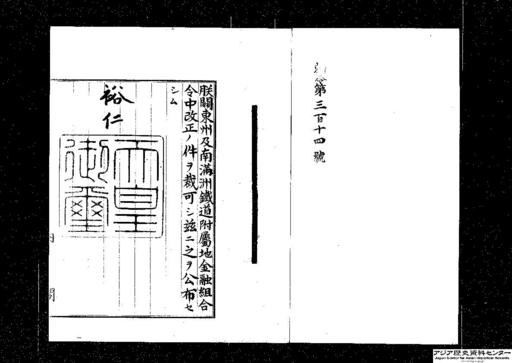 勅令第三百十四號
朕關東州及南滿洲鐵道附屬地金融組合
令中改正ノ件ヲ裁可シ茲ニ之ヲ公布セ
シム
裕仁
天皇
御璽
内閣
アジア歴史資料センター
Japan Center for Asian Historical Records